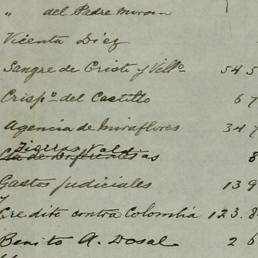 " del Padre Moran
Vicenta Díez
Sangre de Cristo y Villo. 545
Crispo. del Castillo 67
Agencia de Miraflores 347
Tierras Vald
as 8
Gastos Judiciales 139
Credito contra Colombia 123.8
Benito A. Dosal 26